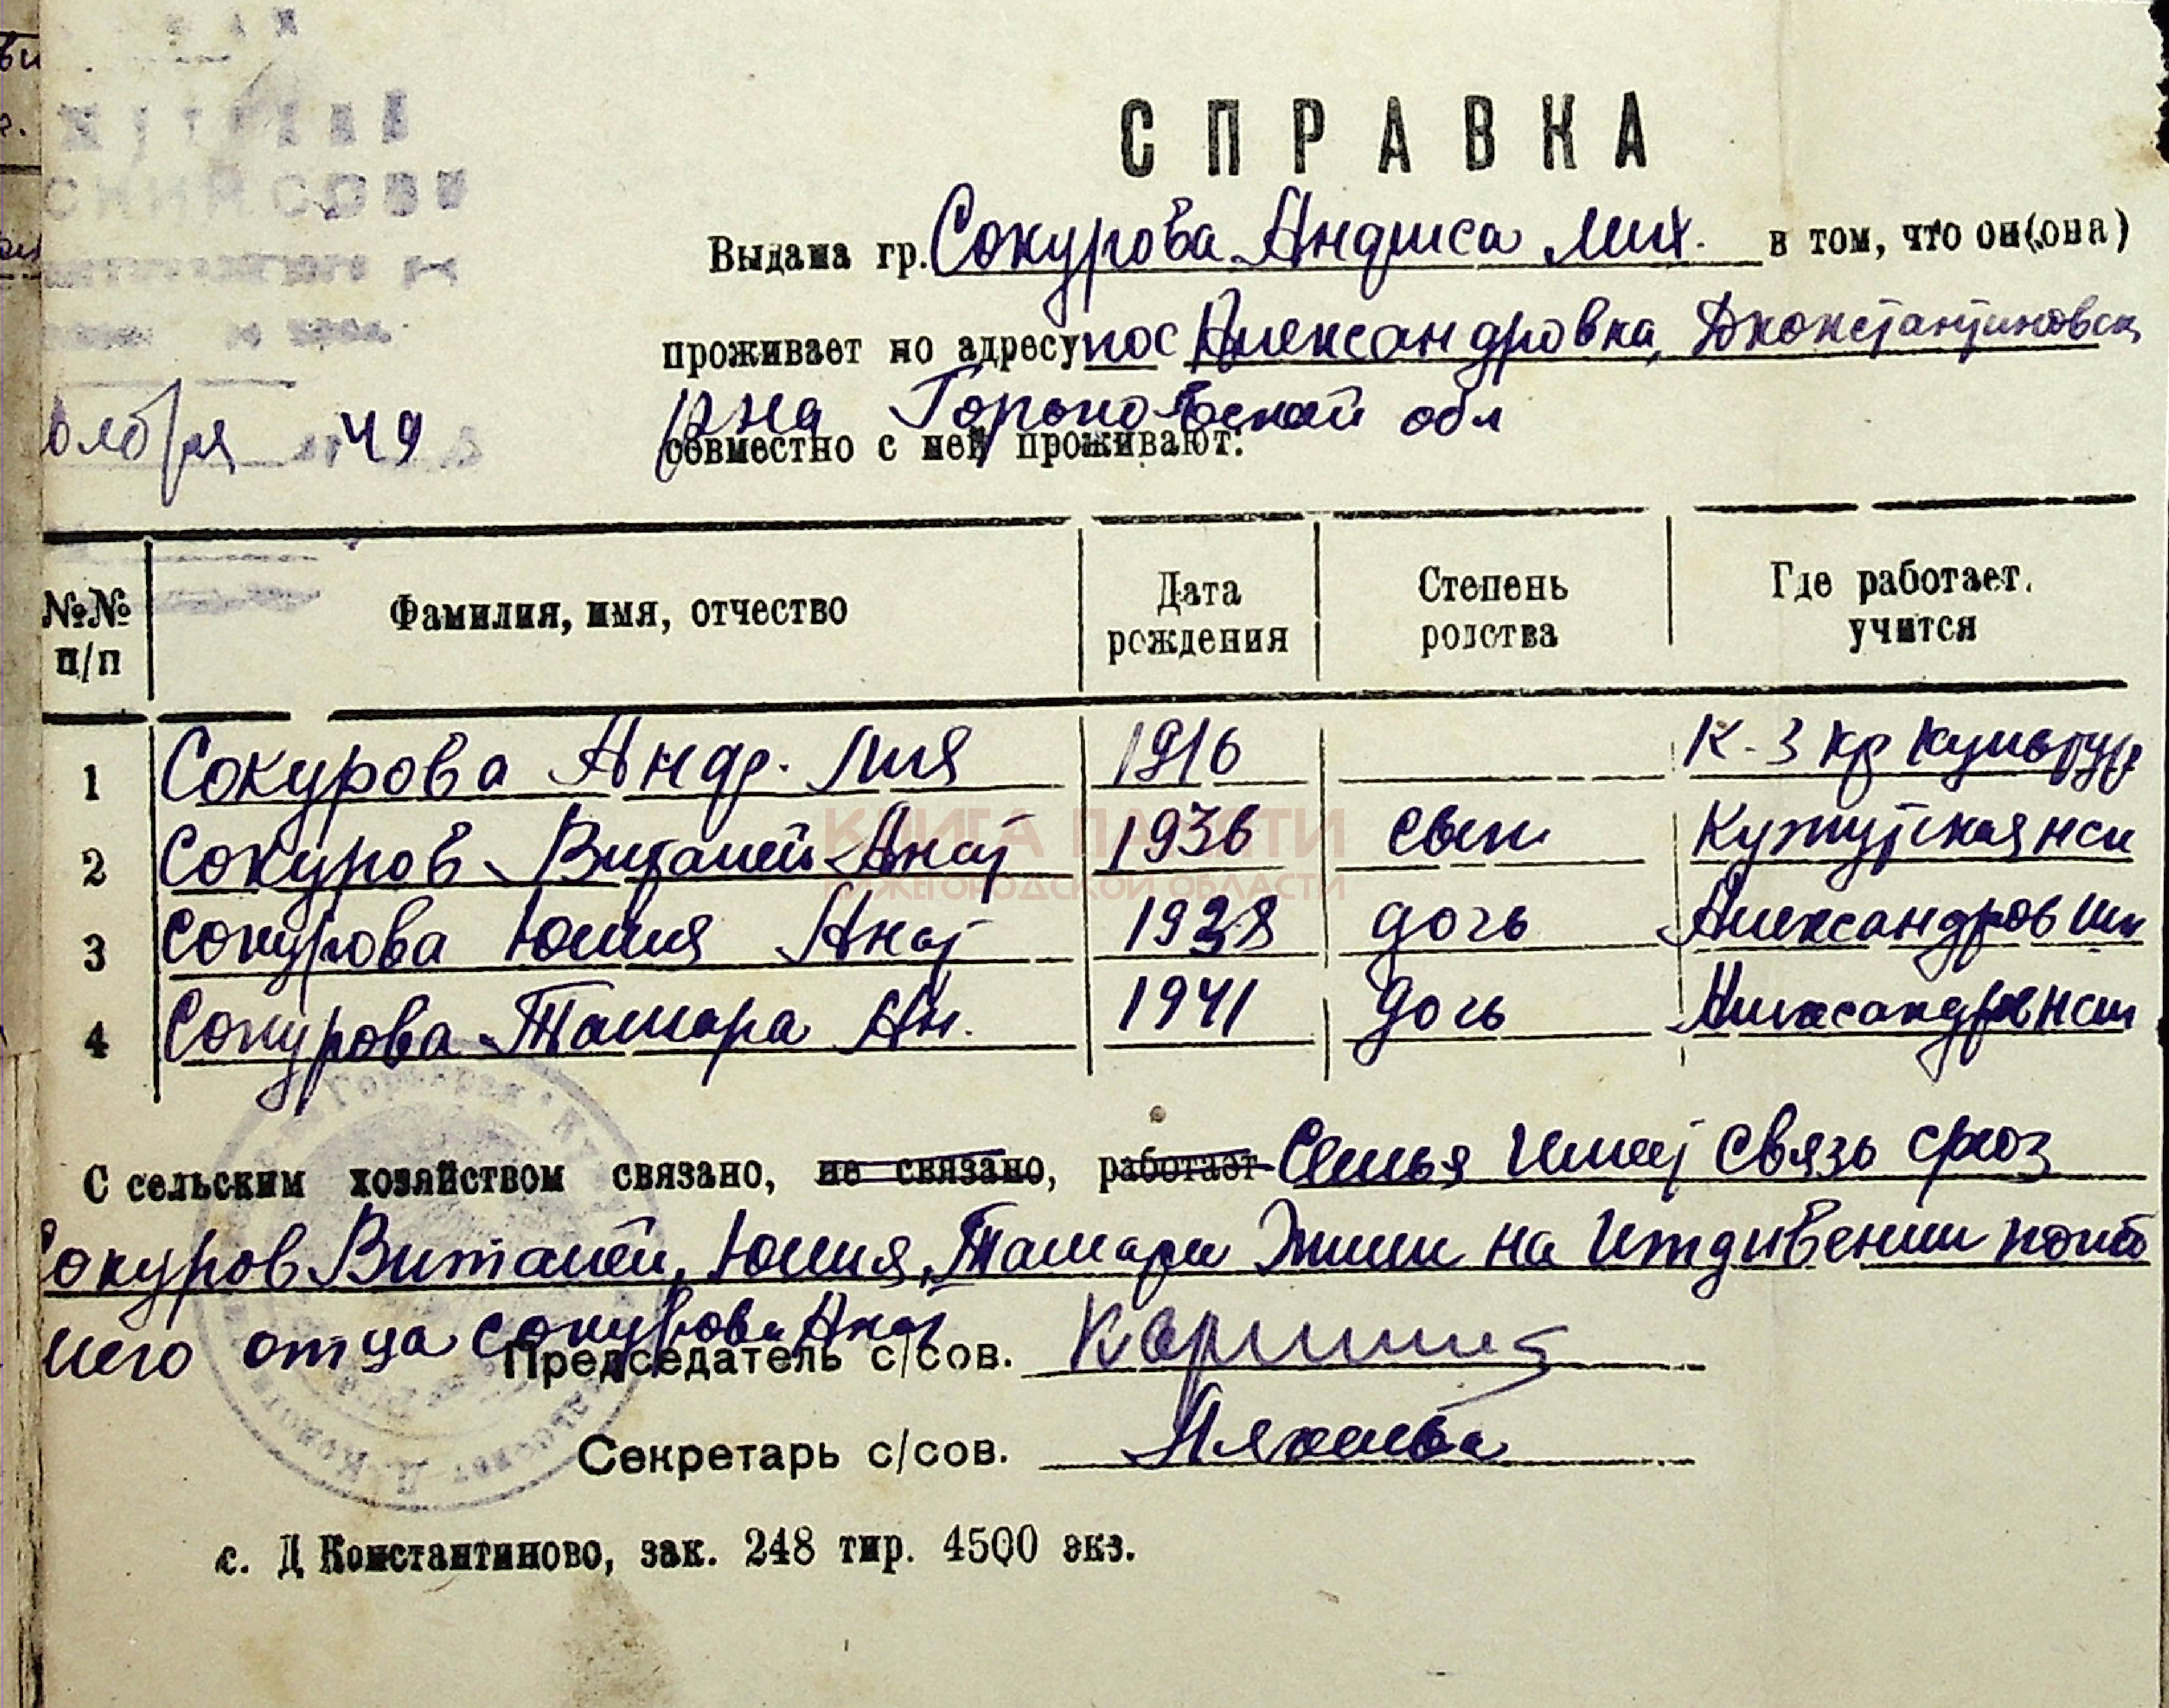 СПРАВКА
Выдана гр. Сокурова Андриса Мих. в том, что он(она)
проживает по адресу пос Александровка, Дконстантиновск
рна Горьковской обл
совместно с ней проживают:
ября 49
№№ п/п Фамилия, имя, отчество Дата рождения Степень родства Где работает, учится
1 Сокурова Андр. Мих 1916 К-з кр культур
2 Сокуров Виталей Анат 1936 сын Кужутская нсш
3 Сокурова Юлия Анат 1938 дочь Александров шк
4 Сокурова Тамара Ан. 1941 дочь
С сельским хозяйством связано, не связано, работает Семья имеет связь
Сокуров Виталей, Юлия, Тамара жили на иждивении погиб
шего отца Сокурова Анат
Председатель с/сов.
Секретарь с/сов.
с. Д Константиново, зак. 248 тир. 4500 экз.
КНИГА ПАМЯТИ
НИЖЕГОРОДСКОЙ ОБЛАСТИ